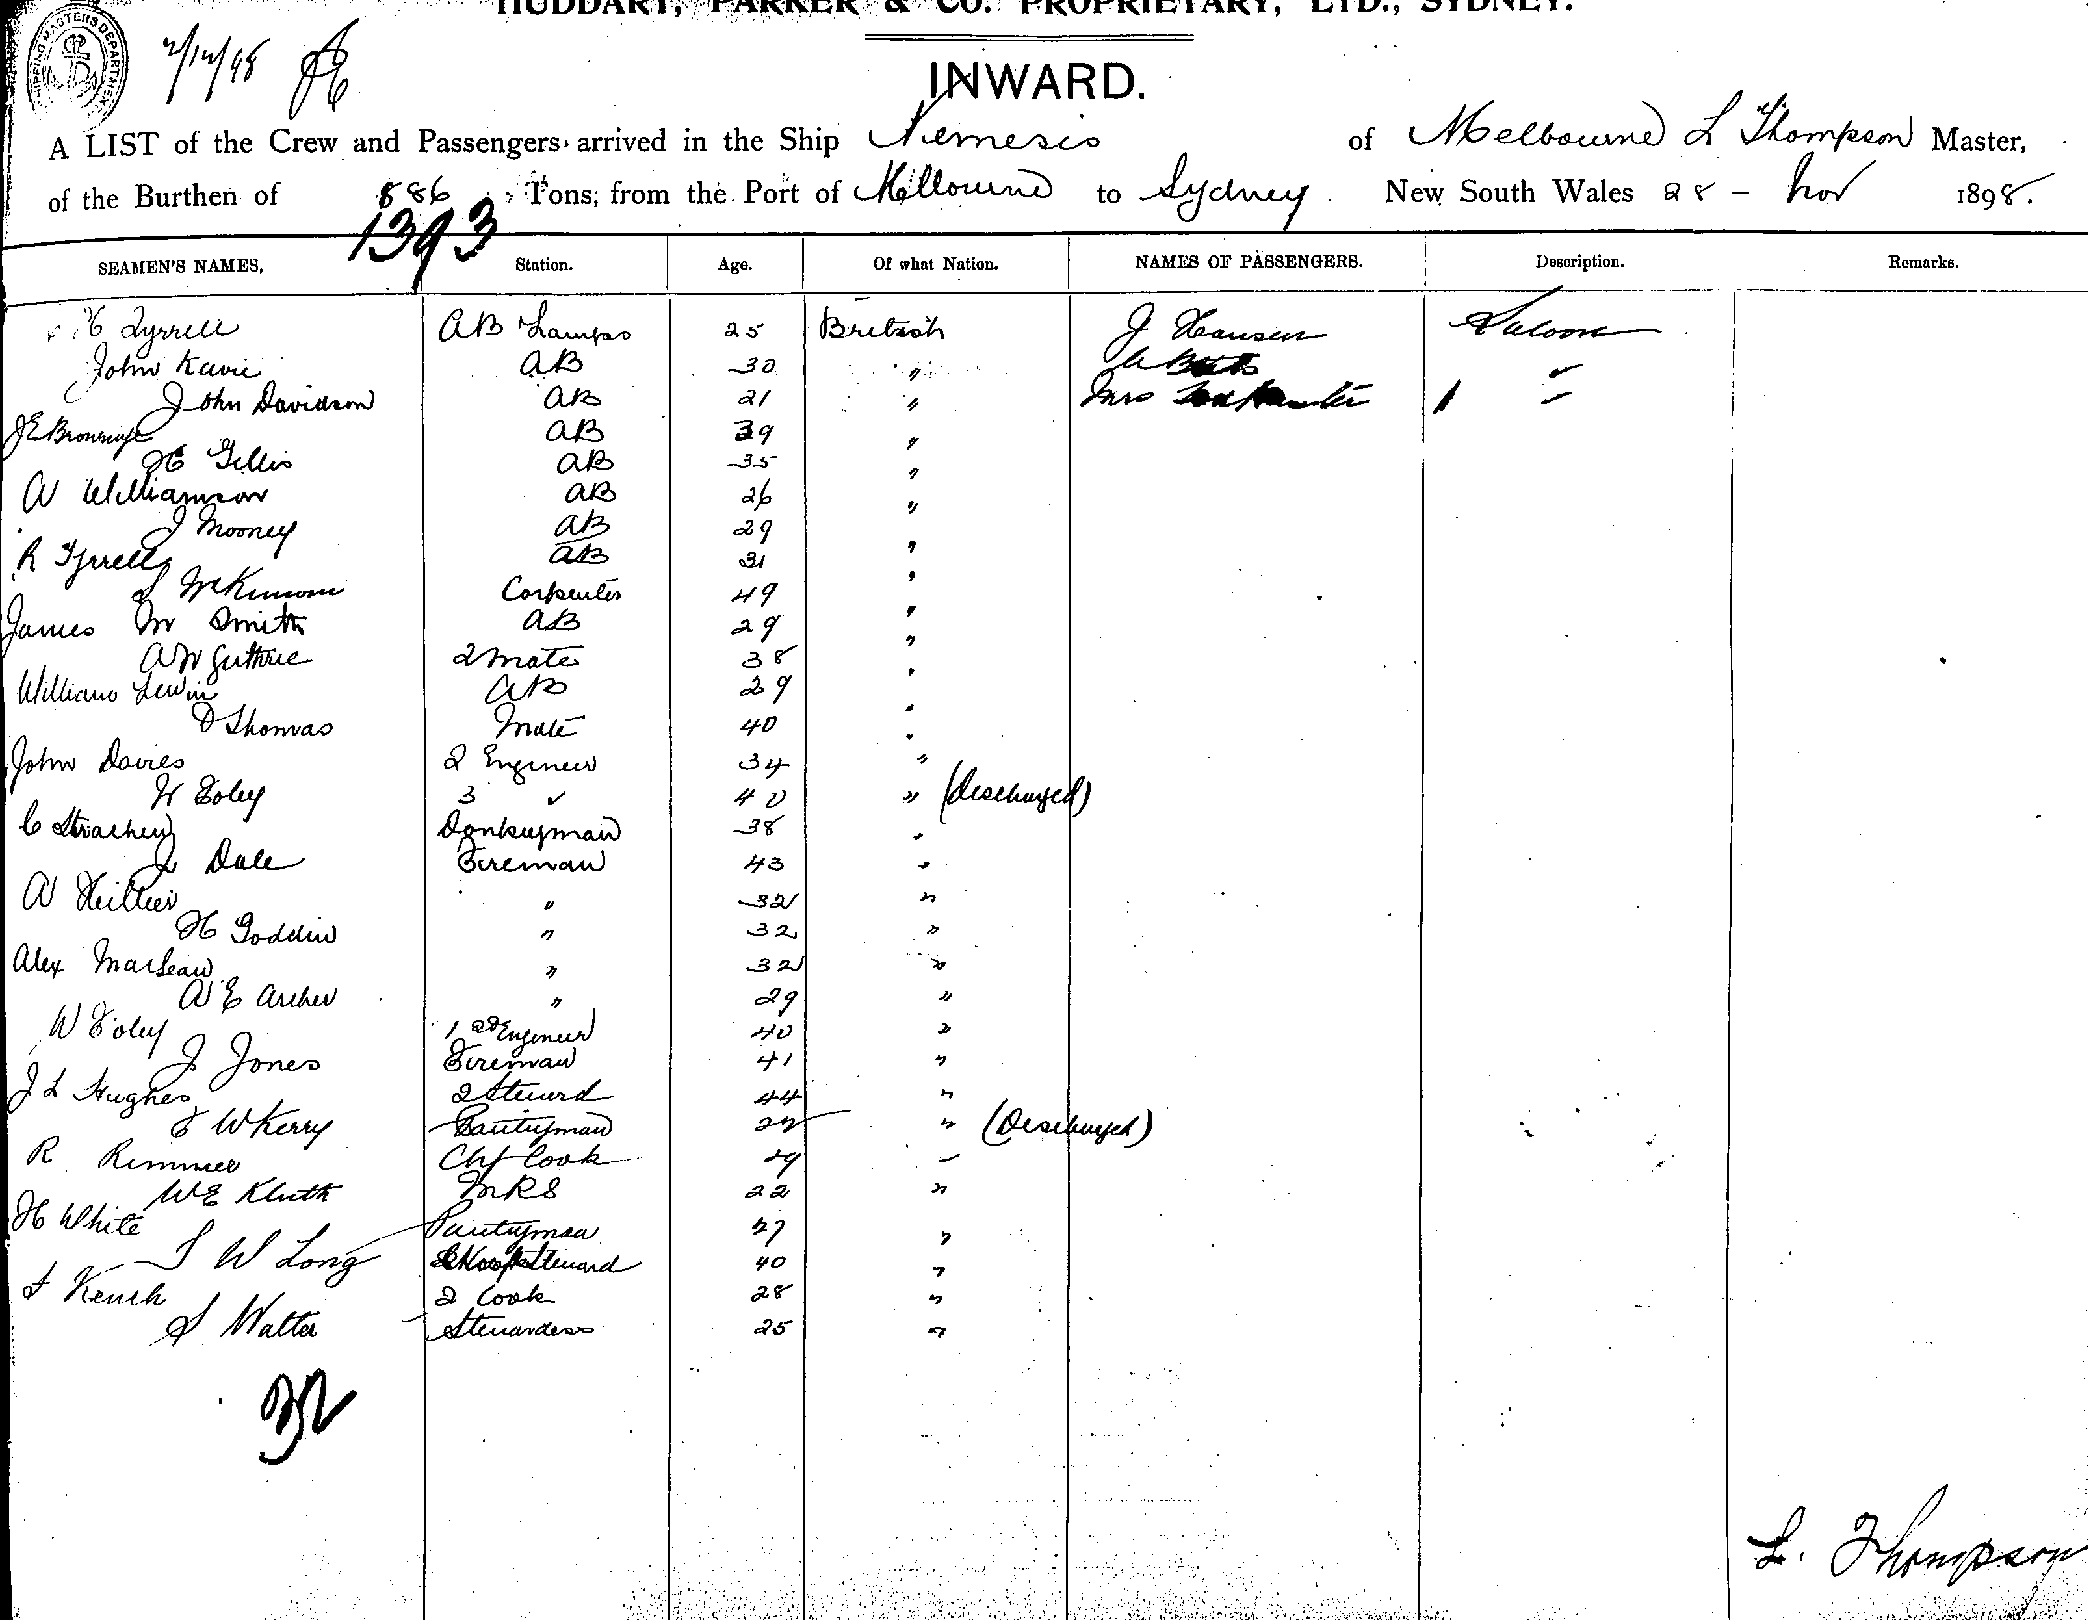 HUDDART, PARKER & CO. PROPRIETARY, LTD., SYDNEY.
SHIPPING MASTER'S DEPARTMENT
2/12/98
INWARD.
A LIST of the Crew and Passengers arrived in the Ship Nemesis of Melbourne L Thompson Master,
of the Burthen of 886 Tons, from the Port of Melbourne to Sydney New South Wales 28 - Nov 1898.
1393
SEAMEN'S NAMES, Station. Age. Of what Nation. NAMES OF PASSENGERS. Description. Remarks.
H Tyrrell AB Lamps 25 British J Hansen Saloon
John Kavie AB 30 "
John Davidson AB 21 " Mrs
J E AB 39 "
H Gillis AB 35 "
W Williamson AB 26 "
J Mooney AB 29 "
R Tyrrell AB 31 "
McKinnon Carpenter 49 "
James M Smith AB 29 "
A W Guthrie 2 Mate 38 "
William Lewin AB 29 "
D Thomas Mate 40 "
John Davies 2 Engineer 34 "
W Foley 3 " 40 " (Discharged)
C Strachen Donkeyman 38 "
J Dale Fireman 43 "
W Hillier " 32 "
H Goddin " 32 "
Alex MacLean " 32 "
W E Archer " 29 "
W Foley Engineer 40 "
J Jones Fireman 41 "
J L Hughes 2 Steward 44 "
F W Kerry Pantryman 22 " (Discharged)
R Rimmer Chf Cook 29 "
W E Kluth MRS 22 "
H White Pantryman 27 "
S W Long Steward 40 "
F Kench 2 Cook 28 "
S Walter Stewardess 25 "
32
L. Thompson